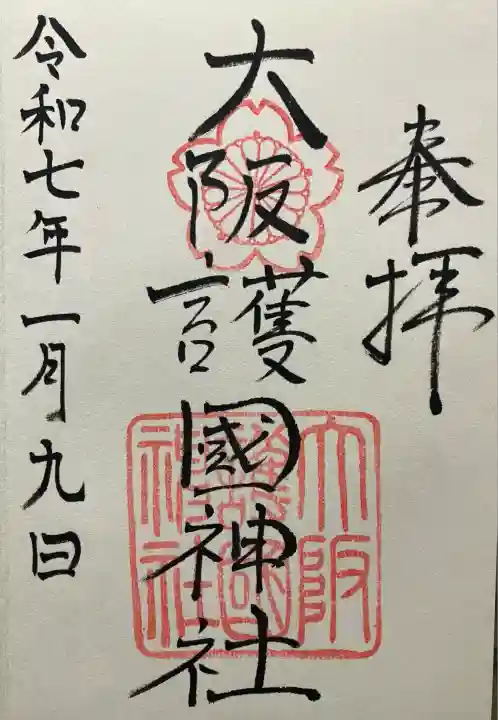 奉拝
大阪護國神社
大阪
護國
神社
令和七年一月九日